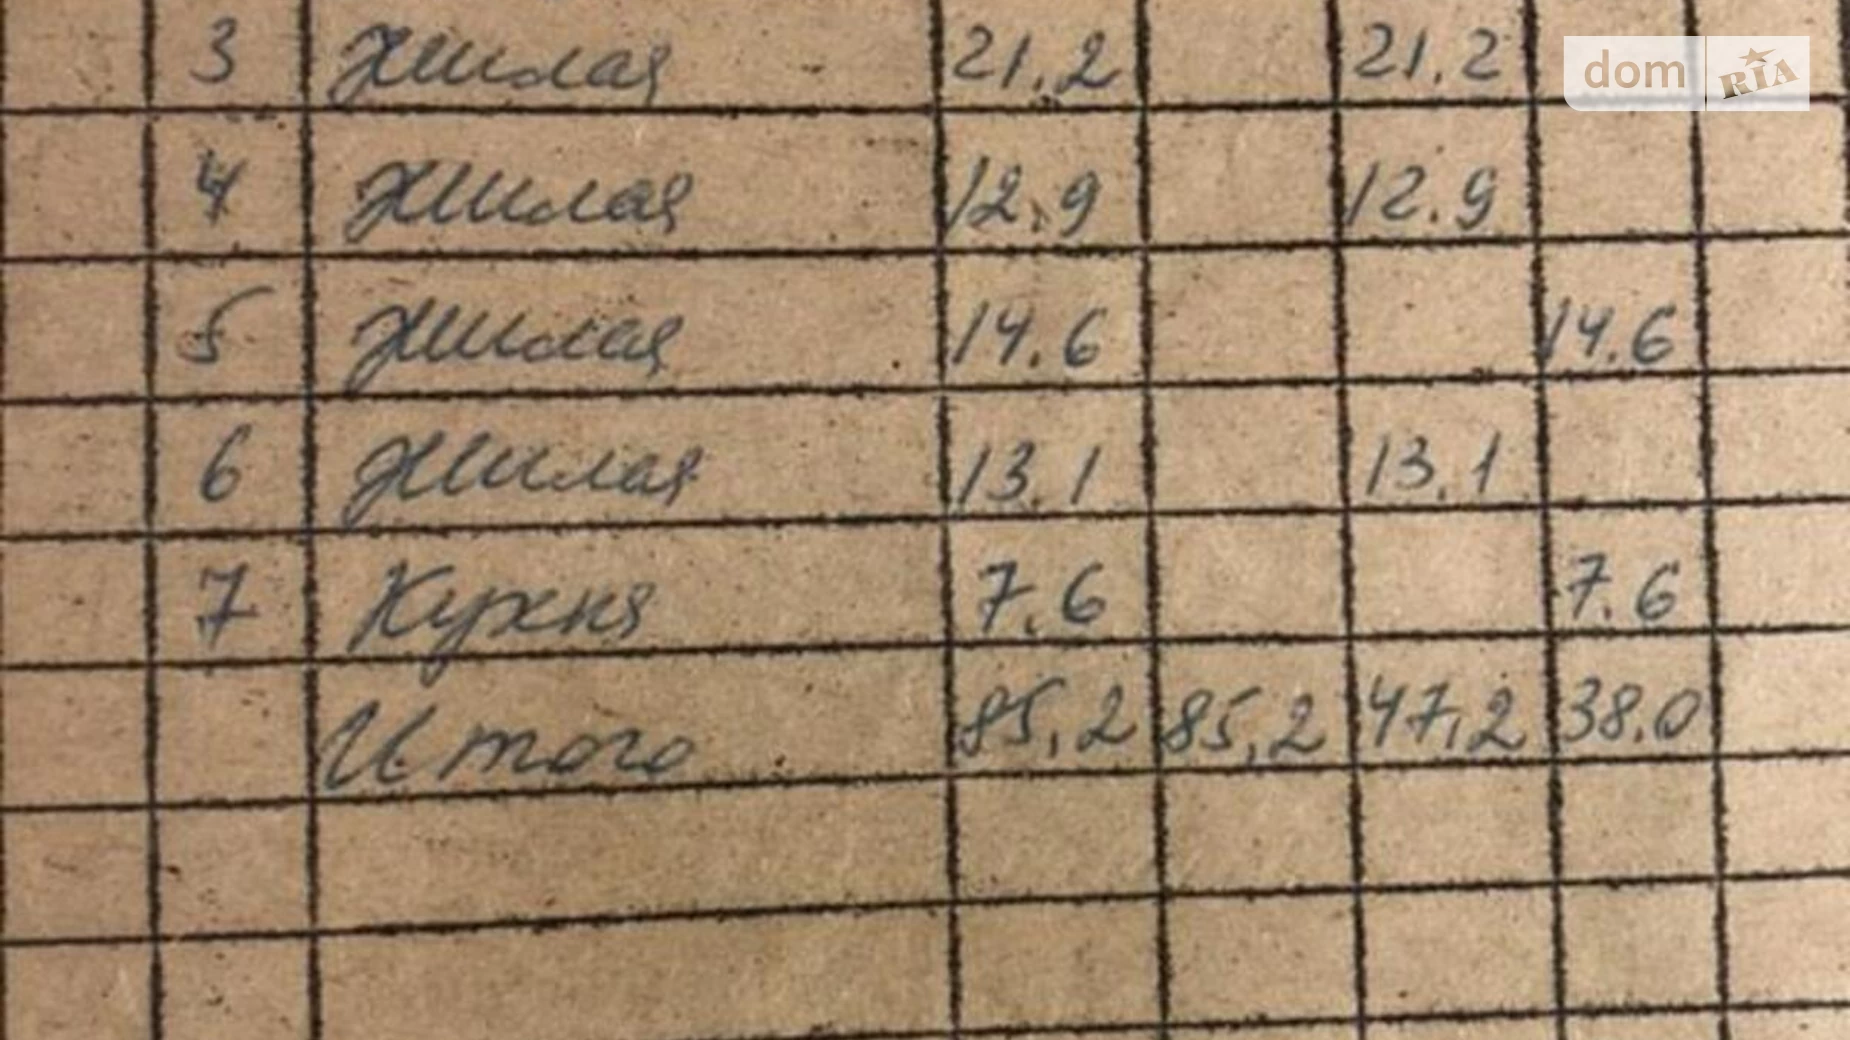 3 Жилая 21.2 21.2
dom RIA
4 Жилая 12.9 12.9
5 Жилая 14.6 14.6
6 Жилая 13.1 13.1
7 Кухня 7.6 7.6
Итого 85,2 85,2 47,2 38.0